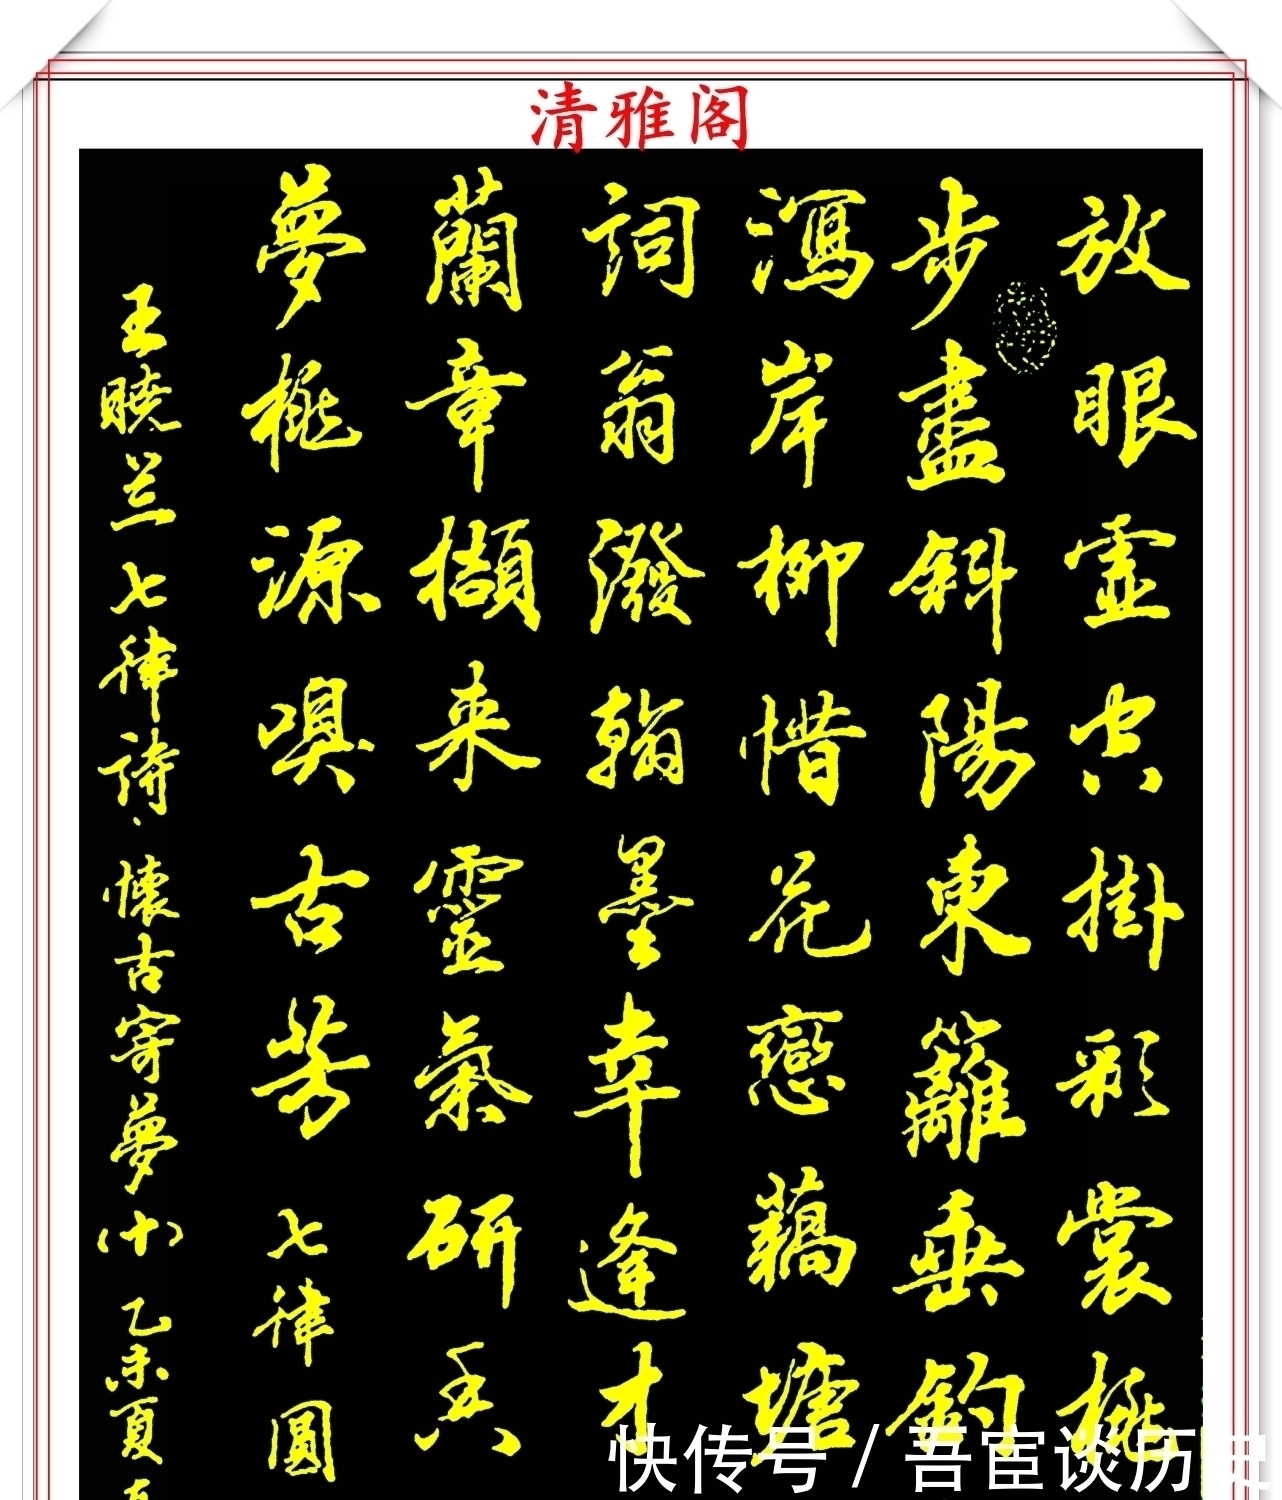 清雅阁
放眼雲空掛彩裳桃
步盡斜陽東籬垂釣
瀉岸柳惜花戀藕塘
詞翁潑翰墨幸逢才
蘭章擷来靈氣研香
夢桃源嗅古芳 七律圆
王曉兰七律詩·懷古寄夢(十)乙未夏
快传号/吾宦谈历史